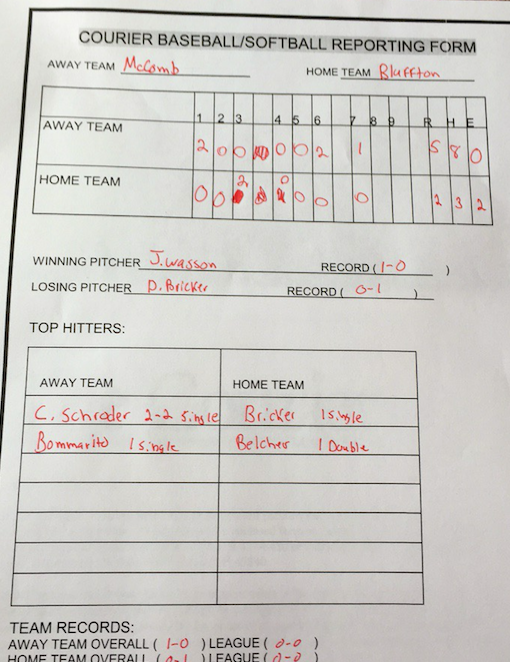 COURIER BASEBALL/SOFTBALL REPORTING FORM
AWAY TEAM McComb HOME TEAM Bluffton
1 2 3 4 5 6 7 8 9 R H E
AWAY TEAM 2 0 0 0 0 2 1 5 8 0
HOME TEAM 0 0 2 0 0 0 0 2 3 2
WINNING PITCHER J. Wasson RECORD ( 1-0 )
LOSING PITCHER D. Bricker RECORD ( 0-1 )
TOP HITTERS:
AWAY TEAM HOME TEAM
C. Schroder 2-2 Single Bricker 1 Single
Bommarito 1 Single Belcher 1 Double
TEAM RECORDS:
AWAY TEAM OVERALL ( 1-0 ) LEAGUE ( 0-0 )
HOME TEAM OVERALL ( 0-1 ) LEAGUE ( 0-0